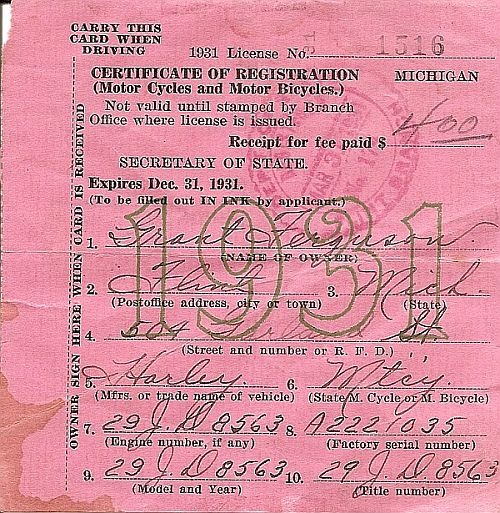 CARRY THIS
CARD WHEN
DRIVING
1931 License No. 1516
CERTIFICATE OF REGISTRATION MICHIGAN
(Motor Cycles and Motor Bicycles.)
Not valid until stamped by Branch
Office where license is issued.
Receipt for fee paid $ 4.00
SECRETARY OF STATE.
Expires Dec. 31, 1931.
(To be filled out IN INK by applicant.)
1931
1. Grant Ferguson.
(NAME OF OWNER)
2. Flint 3. Mich.
(Postoffice address, city or town) (State)
4. 504 Garland St.
(Street and number or R. F. D.)
5. Harley. 6. Mtcy.
(Mfrs. or trade name of vehicle) (State M. Cycle or M. Bicycle)
7. 29 J. D 8563 8. A2221035
(Engine number, if any) (Factory serial number)
9. 29 J. D 8563 10. 29 J. D 8563
(Model and Year) (Title number)
OWNER SIGN HERE WHEN CARD IS RECEIVED